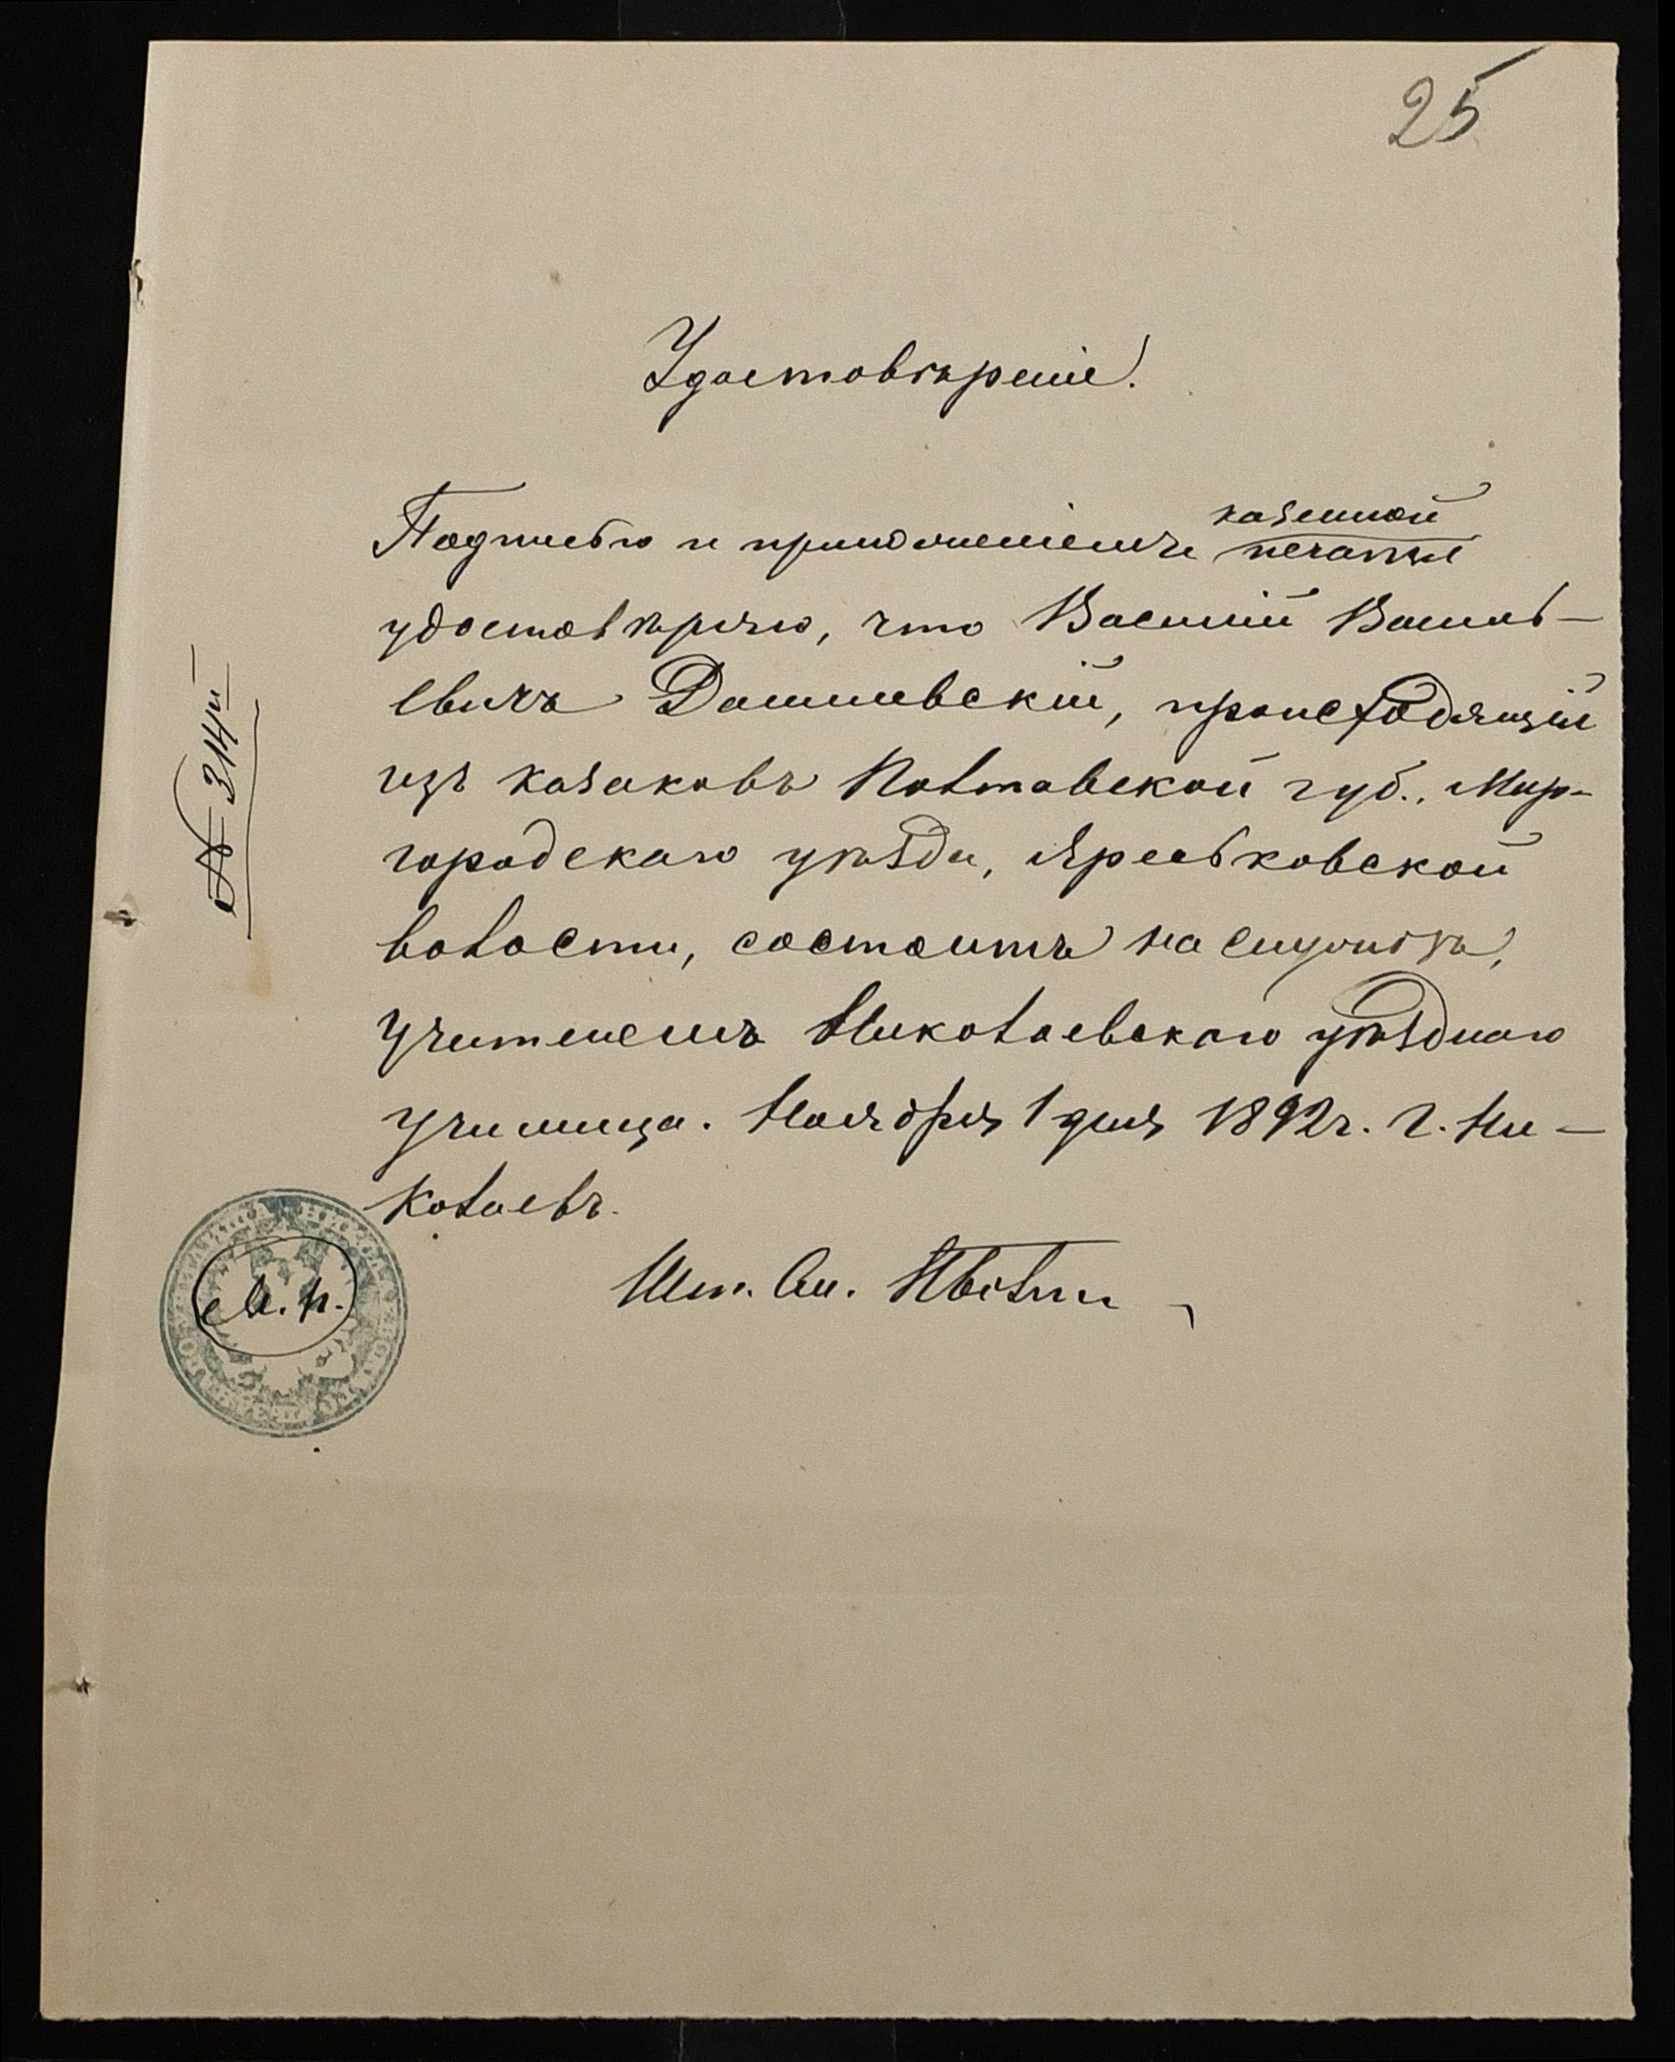 25
Удостовѣреніе.
казенной
Подписью и приложеніемъ печати
удостовѣряю, что Василій Василь-
евичъ Дашевскій, происходящій
изъ казаковъ Полтавской губ., Мир-
городскаго уѣзда, Яреськовской
волости, состоитъ на службѣ,
учителемъ Николаевскаго уѣзднаго
училища. Ноября 1 дня 1892 г. г. Ни-
колаевъ.
№ 314
М.п.
Шт. См.